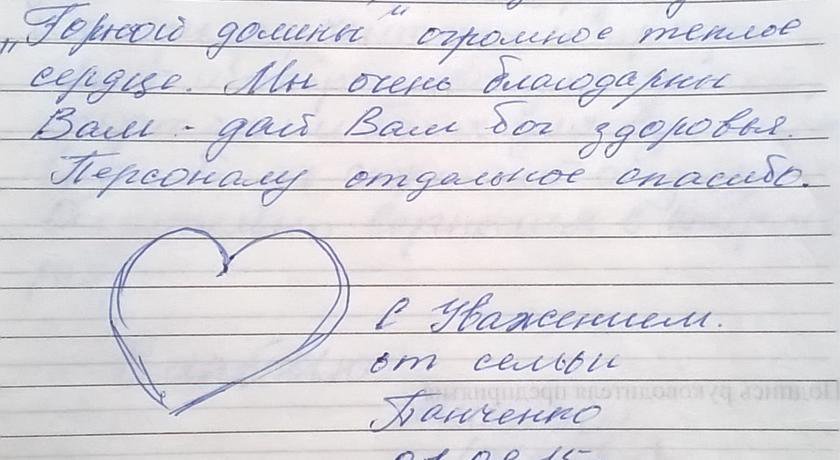 „Горной долины" огромное теплое
сердце. Мы очень благодарны
Вам - дай Вам бог здоровья.
Персоналу отдельное спасибо.
С Уважением.
от семьи
Панченко